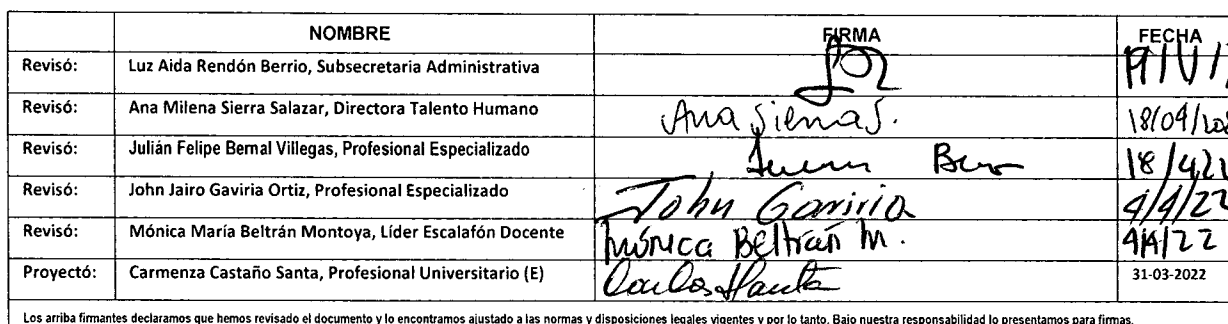 NOMBRE FIRMA FECHA
Revisó: Luz Aida Rendón Berrio, Subsecretaria Administrativa
Revisó: Ana Milena Sierra Salazar, Directora Talento Humano Ana Sierra S. 18/04/202
Revisó: Julián Felipe Bernal Villegas, Profesional Especializado 18/4/22
Revisó: John Jairo Gaviria Ortiz, Profesional Especializado John Gaviria 4/4/22
Revisó: Mónica María Beltrán Montoya, Líder Escalafón Docente Mónica Beltrán M. 4/4/22
Proyectó: Carmenza Castaño Santa, Profesional Universitario (E) 31-03-2022
Los arriba firmantes declaramos que hemos revisado el documento y lo encontramos ajustado a las normas y disposiciones legales vigentes y por lo tanto, Bajo nuestra responsabilidad lo presentamos para firmas.